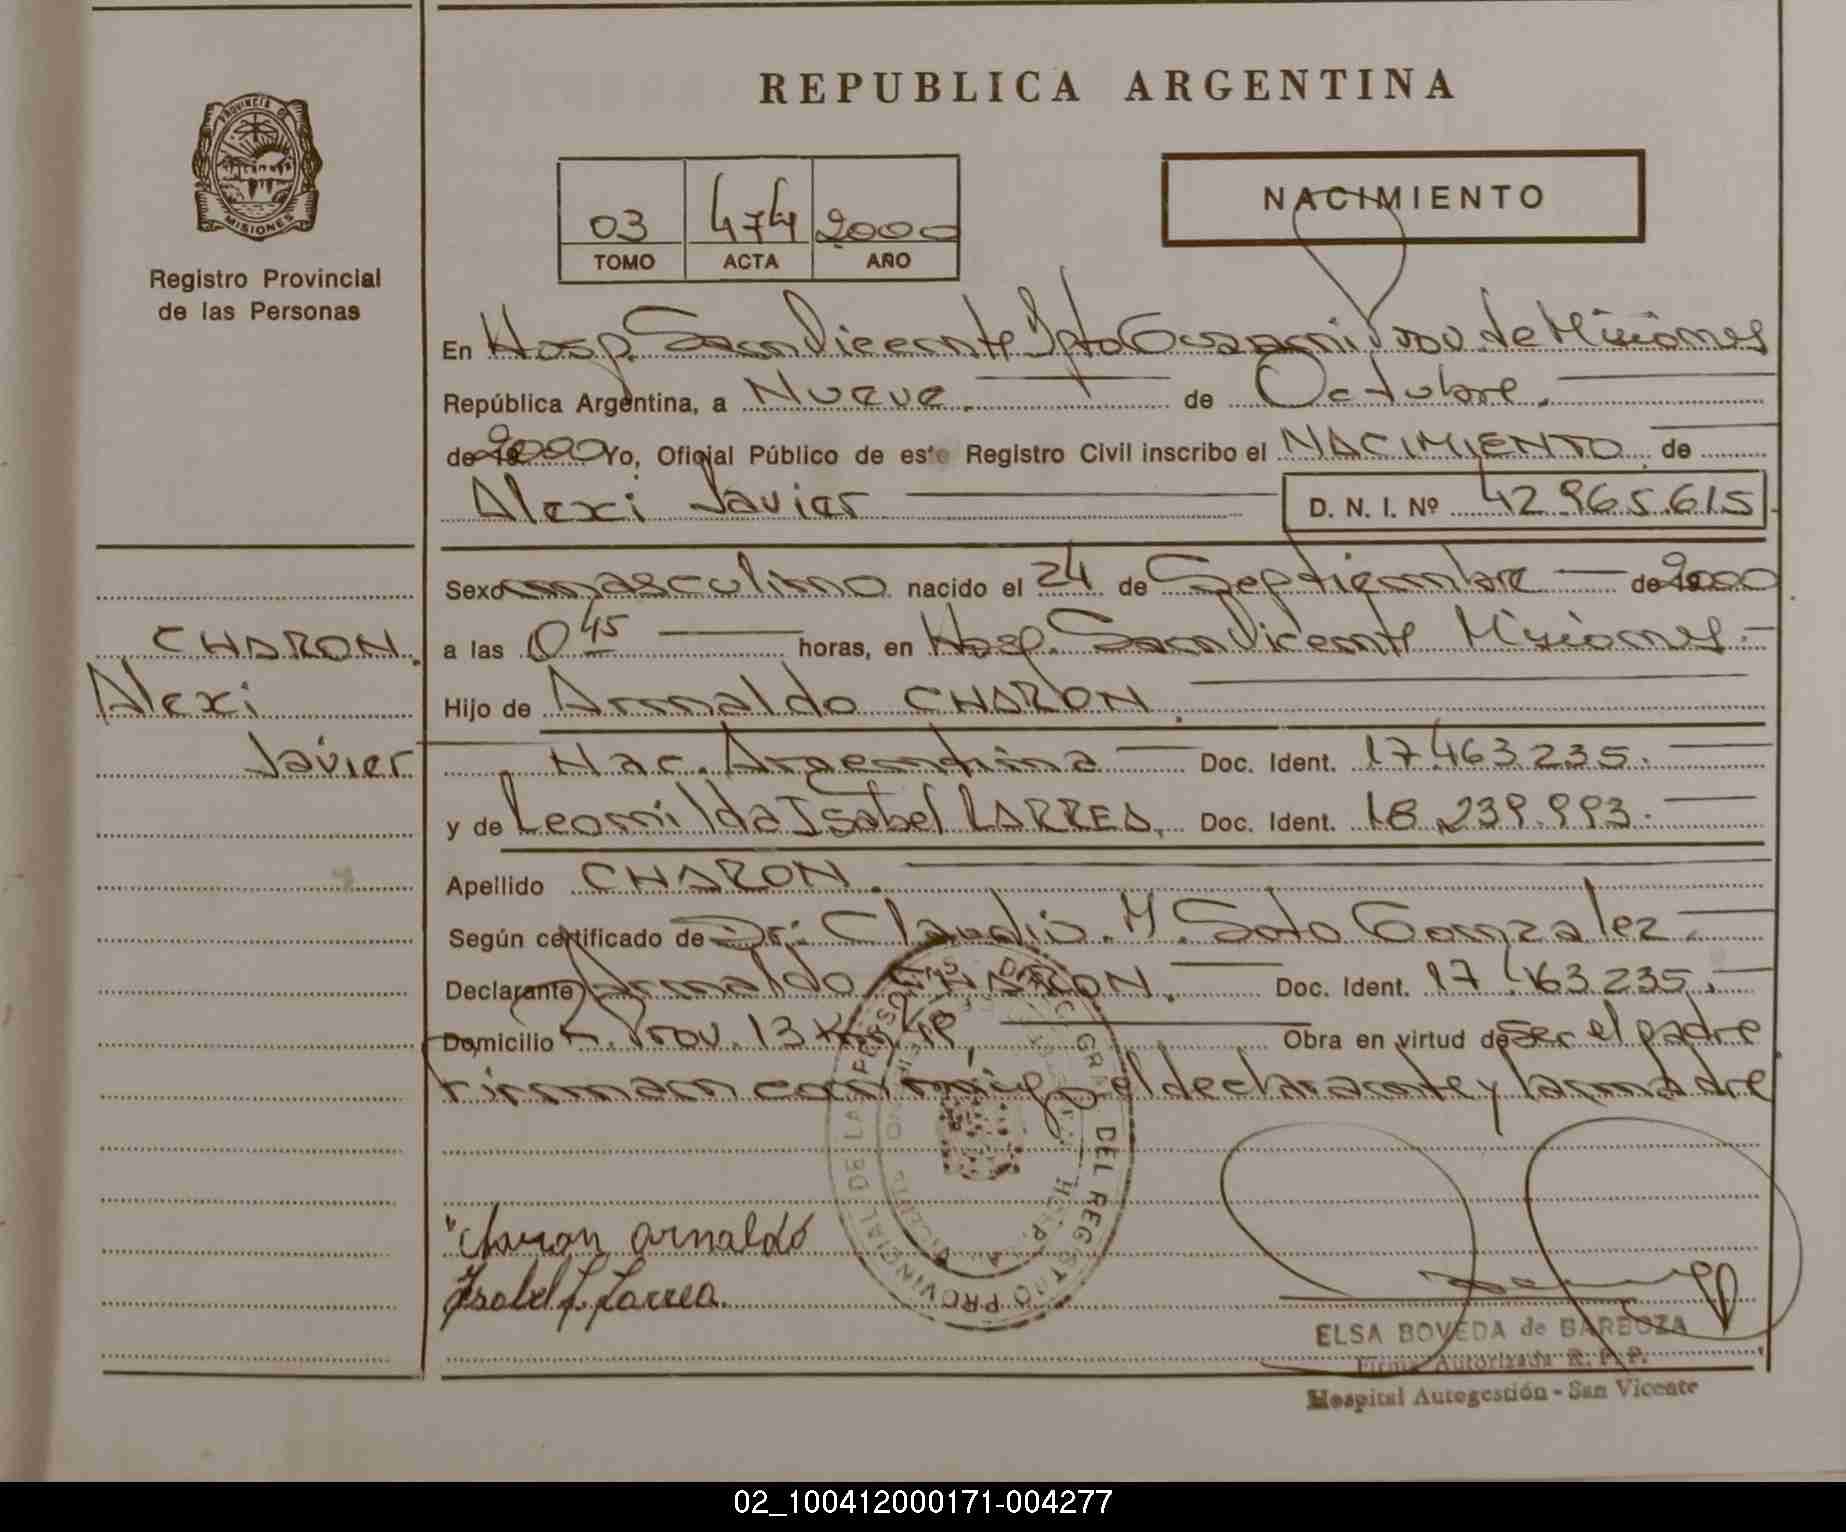 REPUBLICA ARGENTINA
PROVINCIA DE
MISIONES
Registro Provincial
de las Personas
03 474 2000
TOMO ACTA AÑO
NACIMIENTO
En Hosp. San Vicente Dpto Guarani Prov. de Misiones
República Argentina, a Nueve. de Octubre.
de 2000 Yo, Oficial Público de este Registro Civil inscribo el NACIMIENTO de
Alexi Javier D. N. I. Nº 42.965.615
Sexo masculino nacido el 24 de Septiembre de 2000
a las 0 45 horas, en Hosp. San Vicente Misiones.
Hijo de Arnaldo CHARON.
Nac. Argentina Doc. Ident. 17.463.235.
y de Leonilda Isabel LARREA. Doc. Ident. 18.239.993.
Apellido CHARON.
Según certificado de Dr. Claudio. M. Soto Gonzalez.
Declarante Arnaldo CHARON. Doc. Ident. 17.463.235.
Domicilio R. Prov. 13 Km. Obra en virtud de Ser el padre
Firman conmigo el declarante y la madre
CHARON.
Alexi
Javier
Charon Arnaldo
Isabel L. Larrea.
DEL REGISTRO PROVINCIAL DE LAS
ELSA BOVEDA de BARBOZA
Firma Autorizada R. P. P.
Hospital Autogestión - San Vicente
02_100412000171-004277